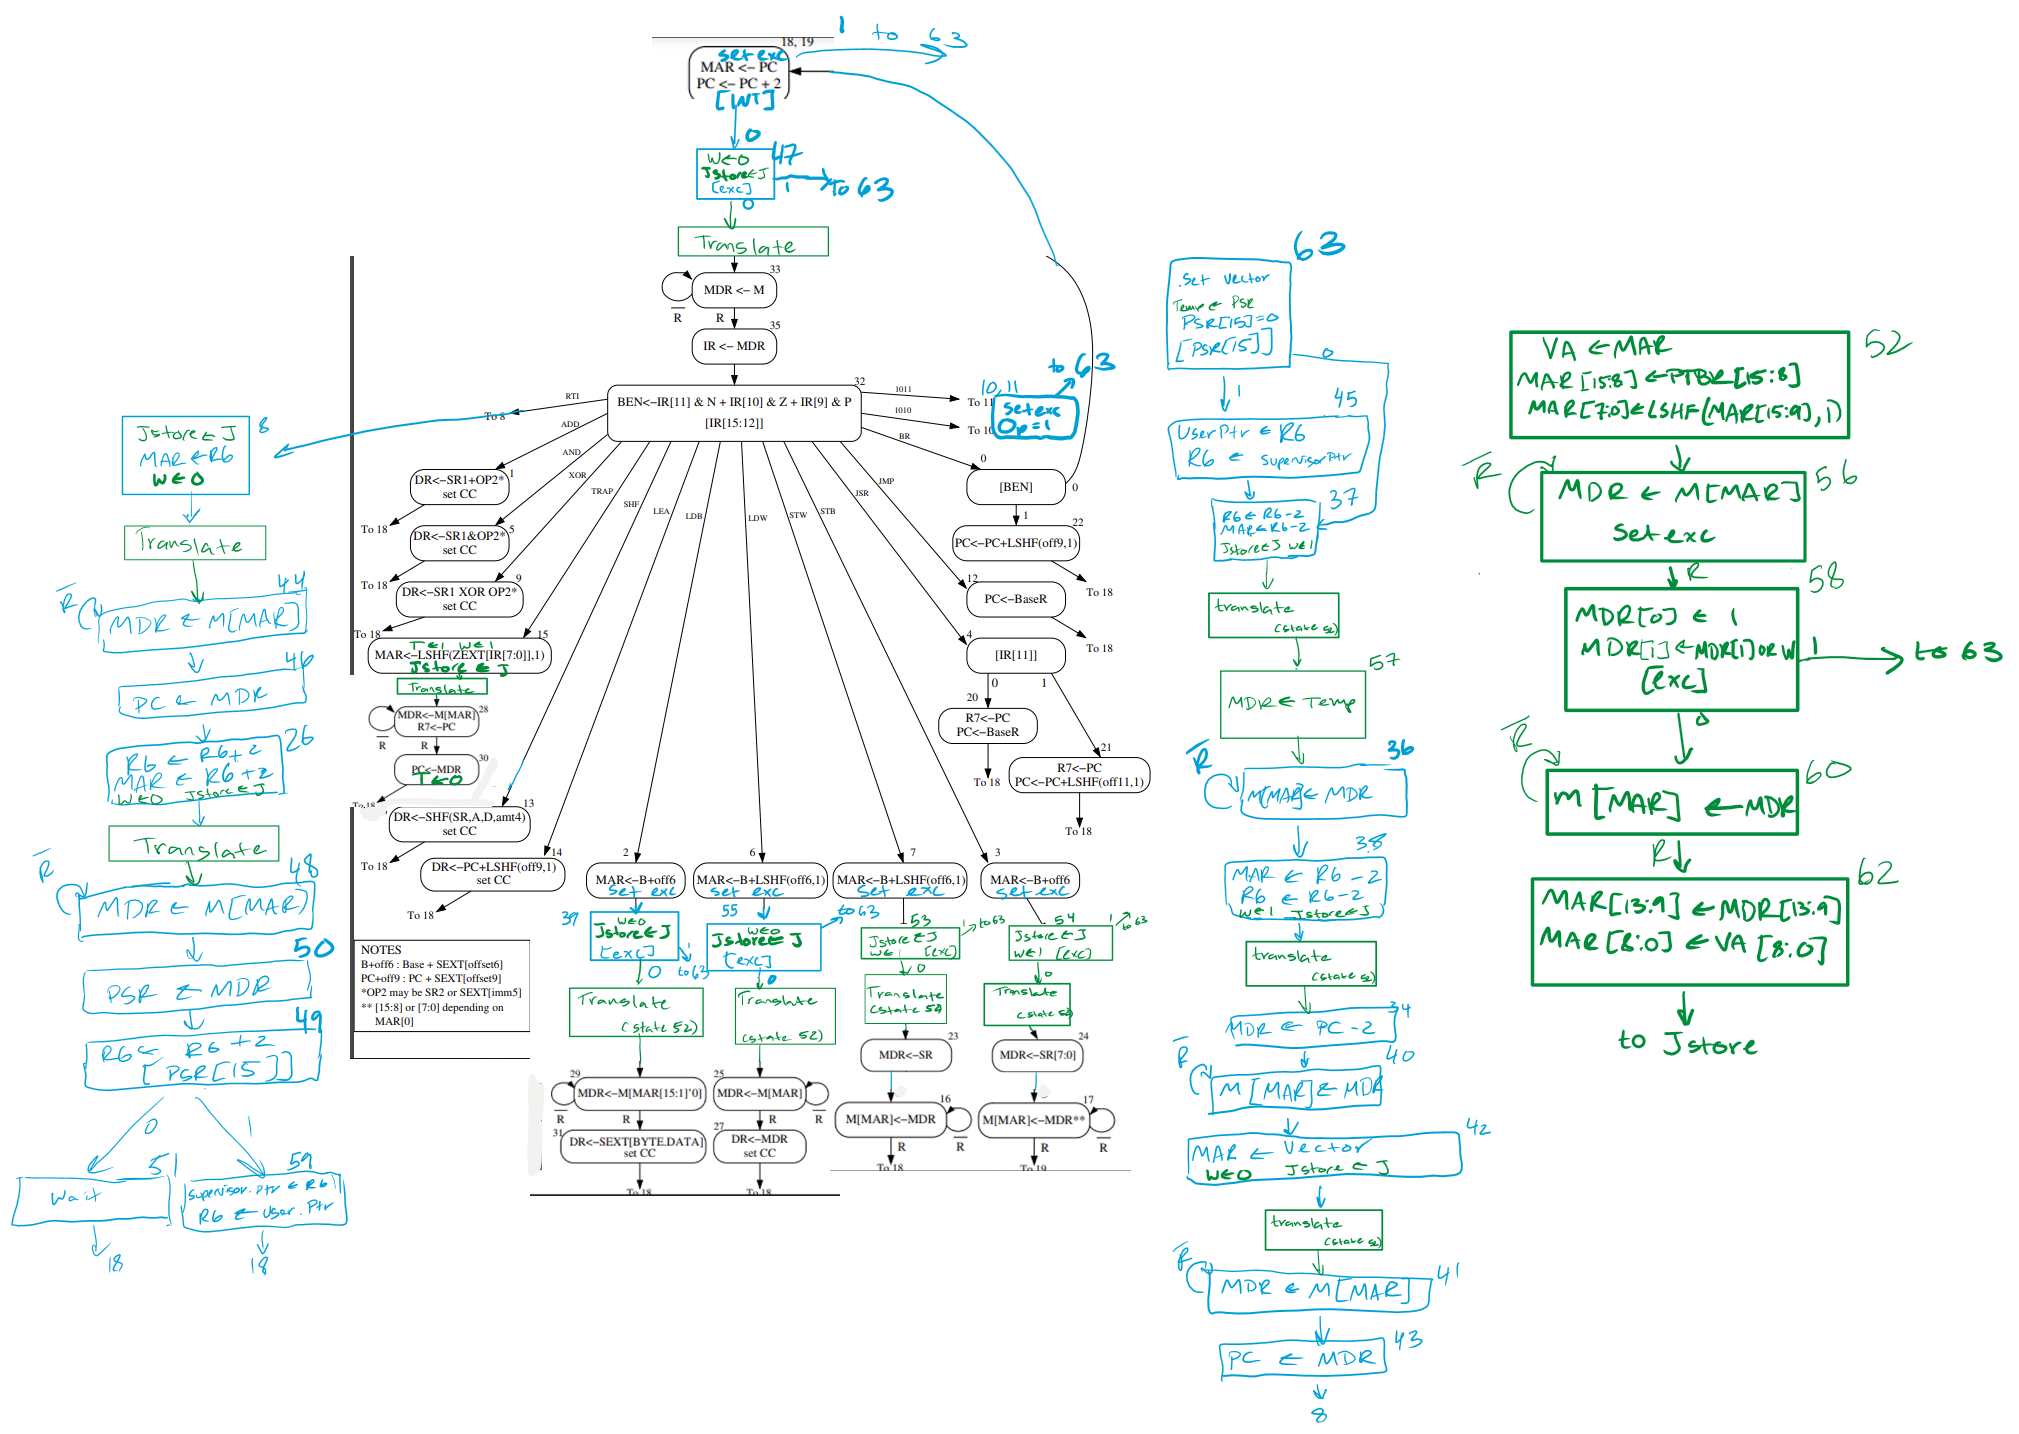 1 to 63
18, 19
set exc
MAR <– PC
PC <– PC + 2
[INT]
0
47
W←0
Jstore←J
[exc]
1
to 63
0
Translate
33
MDR <– M
R̅
R
35
IR <– MDR
32
BEN<–IR[11] & N + IR[10] & Z + IR[9] & P
[IR[15:12]]
RTI
To 8
ADD
AND
XOR
TRAP
SHF
LEA
LDB
LDW
STW
STB
JSR
JMP
BR
1010
1011
To 11
To 10
10, 11
to 63
set exc
Op=1
1
DR<–SR1+OP2*
set CC
To 18
5
DR<–SR1&OP2*
set CC
To 18
9
DR<–SR1 XOR OP2*
set CC
To 18
15
T←1 W←1
MAR<–LSHF(ZEXT[IR[7:0]],1)
Jstore ← J
Translate
28
MDR<–M[MAR]
R7<–PC
R̅
R
30
PC<–MDR
T←0
To 18
13
DR<–SHF(SR,A,D,amt4)
set CC
To 18
14
DR<–PC+LSHF(off9,1)
set CC
To 18
NOTES
B+off6 : Base + SEXT[offset6]
PC+off9 : PC + SEXT[offset9]
*OP2 may be SR2 or SEXT[imm5]
** [15:8] or [7:0] depending on
MAR[0]
2
MAR<–B+off6
set exc
39
W←0
Jstore←J
[exc]
0
1
to 63
Translate
(state 52)
29
MDR<–M[MAR[15:1]'0]
R̅
R
31
DR<–SEXT[BYTE.DATA]
set CC
To 18
6
MAR<–B+LSHF(off6,1)
set exc
55
to 63
W←0
Jstore←J
[exc]
0
Translate
(state 52)
25
MDR<–M[MAR]
R
R̅
27
DR<–MDR
set CC
To 18
7
MAR<–B+LSHF(off6,1)
set exc
53
1 → to 63
Jstore←J
W←1 [exc]
0
Translate
(state 52)
23
MDR<–SR
16
M[MAR]<–MDR
R
R̅
To 18
3
MAR<–B+off6
set exc
54
1
to 63
Jstore←J
W←1 [exc]
0
Translate
(state 52)
24
MDR<–SR[7:0]
17
M[MAR]<–MDR**
R
R̅
To 19
0
[BEN]
0
1
22
PC<–PC+LSHF(off9,1)
To 18
12
PC<–BaseR
To 18
4
[IR[11]]
0
1
20
R7<–PC
PC<–BaseR
To 18
21
R7<–PC
PC<–PC+LSHF(off11,1)
To 18
8
Jstore←J
MAR←R6
W←0
Translate
44
R̅
MDR ← M[MAR]
46
PC ← MDR
26
R6 ← R6+2
MAR ← R6+2
W←0 Jstore←J
Translate
48
R̅
MDR ← M[MAR)
50
PSR ← MDR
49
R6 ← R6+2
[PSR[15]]
0
1
51
Wait
18
59
Supervisor.Ptr ← R6
R6 ← User.Ptr
18
63
.Set Vector
Temp ← PSR
PSR[15]=0
[PSR[15]]
0
1
45
UserPtr ← R6
R6 ← SupervisorPtr
37
R6 ← R6-2
MAR←R6-2
Jstore←J W←1
translate
(state 52)
57
MDR ← Temp
36
R̅
M[MAR] ← MDR
38
MAR ← R6-2
R6 ← R6-2
W←1 Jstore←J
translate
(state 52)
34
MDR ← PC-2
40
R̅
M[MAR]←MDR
42
MAR ← Vector
W←0 Jstore ← J
translate
(state 52)
41
R̅
MDR ← M[MAR]
43
PC ← MDR
8
52
VA ← MAR
MAR[15:8] ←PTBR[15:8]
MAR[7:0]←LSHF(MAR[15:9],1)
56
R̅
MDR ← M[MAR]
set exc
R
58
MDR[0] ← 1
MDR[1]←MDR[1] OR W
[exc]
1
to 63
0
60
R̅
M[MAR] ←MDR
R
62
MAR[13:9]←MDR[13:9]
MAR[8:0]←VA[8:0]
to Jstore